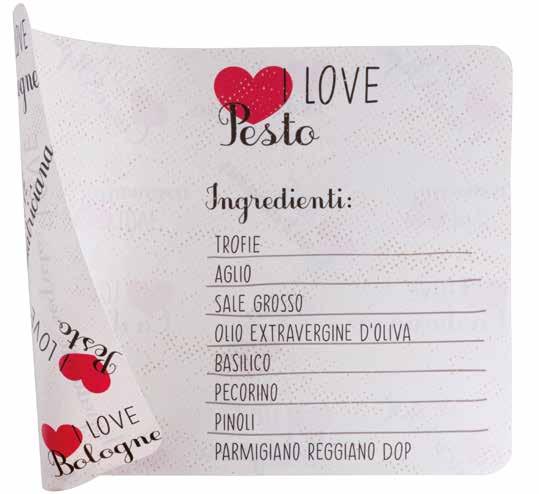 I LOVE
Pesto
Ingredienti:
TROFIE
AGLIO
SALE GROSSO
OLIO EXTRAVERGINE D'OLIVA
BASILICO
PECORINO
PINOLI
PARMIGIANO REGGIANO DOP
LOVE
I LOVE
Pesto
I LOVE
Bologne